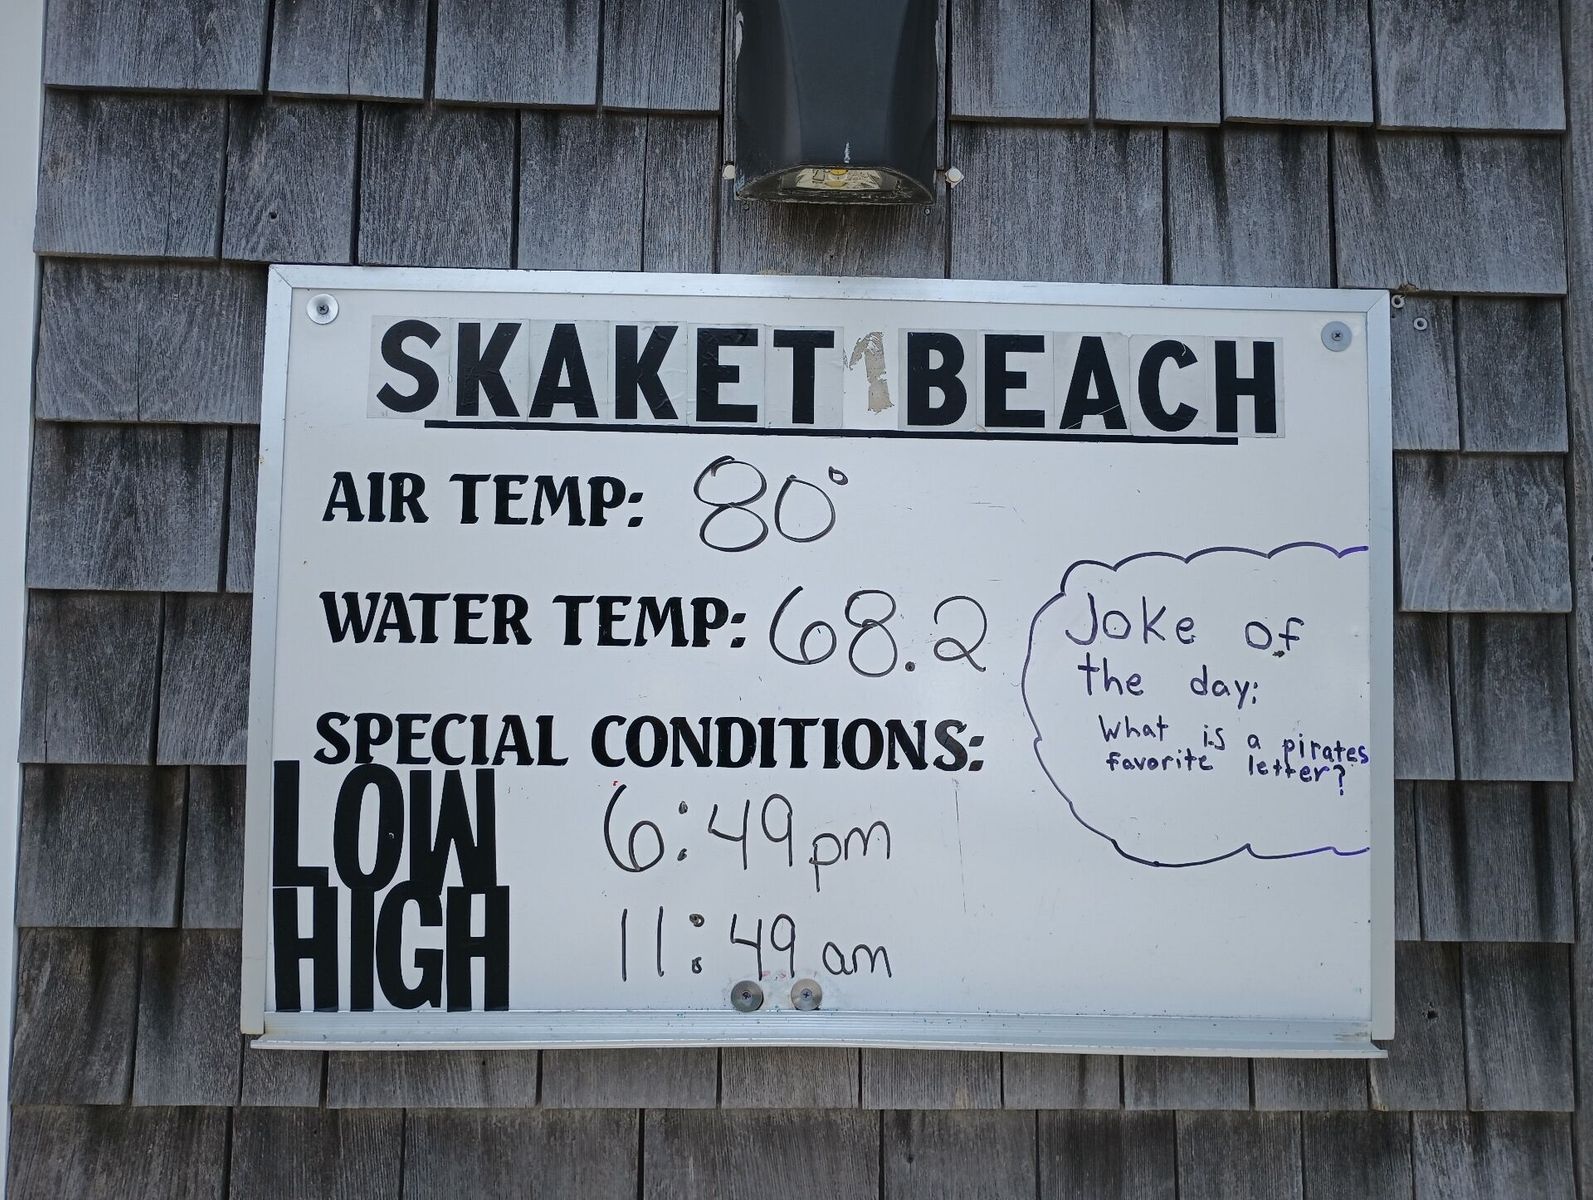 SKAKET BEACH
AIR TEMP: 80°
WATER TEMP: 68.2
SPECIAL CONDITIONS:
LOW 6:49 pm
HIGH 11:49 am
Joke of
the day:
What is a pirates
favorite letter?